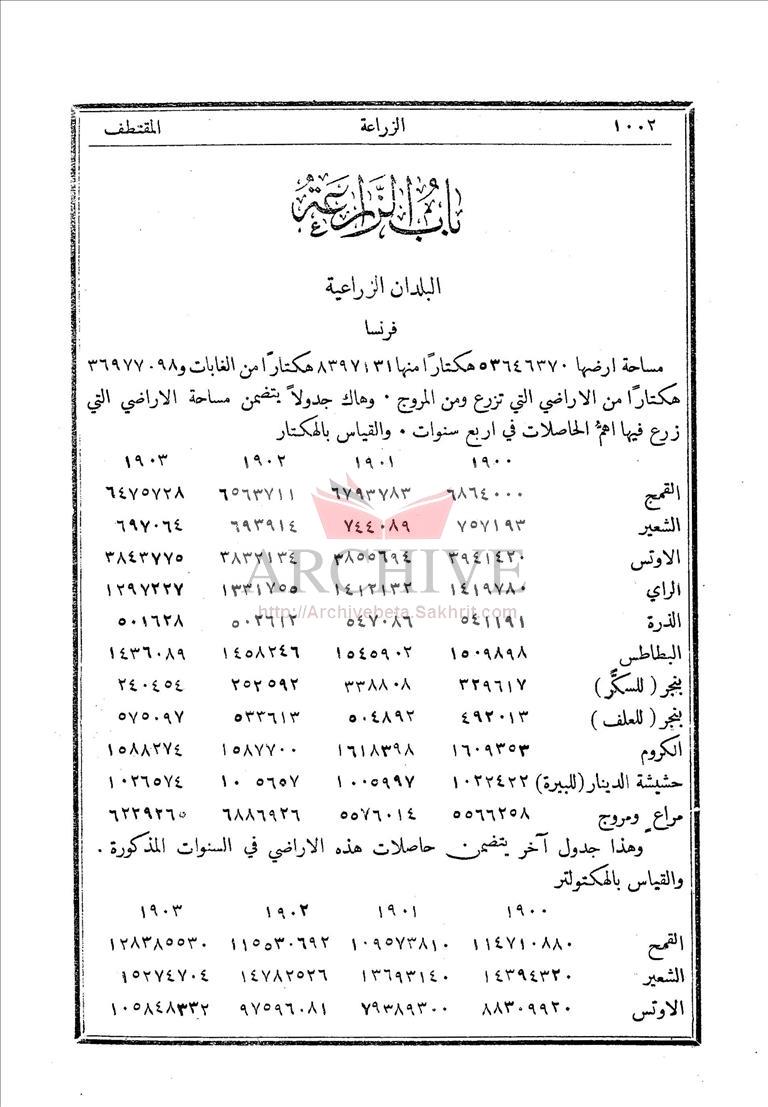 ١٠٠٢ الزراعة المقتطف
باب الزراعة
البلدان الزراعية
فرنسا
مساحة ارضها ٥٣٦٤٦٣٧٠ هكتارًا منها ٨٣٩٧١٣١ هكتارًا من الغابات و٣٦٩٧٧٠٩٨
هكتارًا من الاراضي التي تزرع ومن المروج ٠ وهاك جدولاً يتضمن مساحة الاراضي التي
زرع فيها اهمُّ الحاصلات في اربع سنوات ٠ والقياس بالهكتار
١٩٠٠ ١٩٠١ ١٩٠٢ ١٩٠٣
القمح ٦٨٦٤٠٠٠ ٦٧٩٣٧٨٣ ٦٥٦٣٧١١ ٦٤٧٥٧٢٨
الشعير ٧٥٧١٩٣ ٧٤٤٠٨٩ ٦٩٣٩١٤ ٦٩٧٠٦٤
الاوتس ٣٩٤١٤٢٠ ٣٨٥٥٦٩٤ ٣٨٣٢١٣٤ ٣٨٤٣٧٧٥
الراي ١٤١٩٧٨٠ ١٤١٢١٣٢ ١٣٣١٧٥٥ ١٢٩٧٢٢٧
الذرة ٥٤١١٩١ ٥٤٧٠٨٦ ٥٠٢٦١٢ ٥٠١٦٢٨
البطاطس ١٥٠٩٨٩٨ ١٥٤٥٩٠٢ ١٤٥٨٢٤٦ ١٤٣٦٠٨٩
بنجر ( للسكَّر ) ٣٢٩٦١٧ ٣٣٨٨٠٨ ٢٥٢٥٩٢ ٢٤٠٤٥٤
بنجر ( للعلف ) ٤٩٢٠١٣ ٥٠٤٨٩٢ ٥٣٣٦١٣ ٥٧٥٠٩٧
الكروم ١٦٠٩٣٥٣ ١٦١٨٣٩٨ ١٥٨٧٧٠٠ ١٥٨٨٢٧٤
حشيشة الدينار (للبيرة) ١٠٢٢٤٢٢ ١٠٠٥٩٩٧ ١٠ ٥٦٥٧ ١٠٢٦٥٧٤
مراعٍ ومروج ٥٥٦٦٢٥٨ ٥٥٧٦٠١٤ ٦٨٨٦٩٢٦ ٦٢٢٩٢٦٥
وهذا جدول آخر يتضمن حاصلات هذه الاراضي في السنوات المذكورة ٠
والقياس بالهكتولتر
١٩٠٠ ١٩٠١ ١٩٠٢ ١٩٠٣
القمح ١١٤٧١٠٨٨٠ ١٠٩٥٧٣٨١٠ ١١٥٥٣٠٦٩٢ ١٢٨٣٨٥٥٣٠
الشعير ١٤٣٩٤٣٢٠ ١٣٦٩٣١٤٠ ١٤٧٨٢٥٢٦ ١٥٢٧٤٧٠٤
الاوتس ٨٨٣٠٩٩٢٠ ٧٩٣٨٩٣٠٠ ٩٧٥٩٦٠٨١ ١٠٥٨٤٨٣٣٢
ARCHIVE
http://Archivebeta.Sakhrit.com